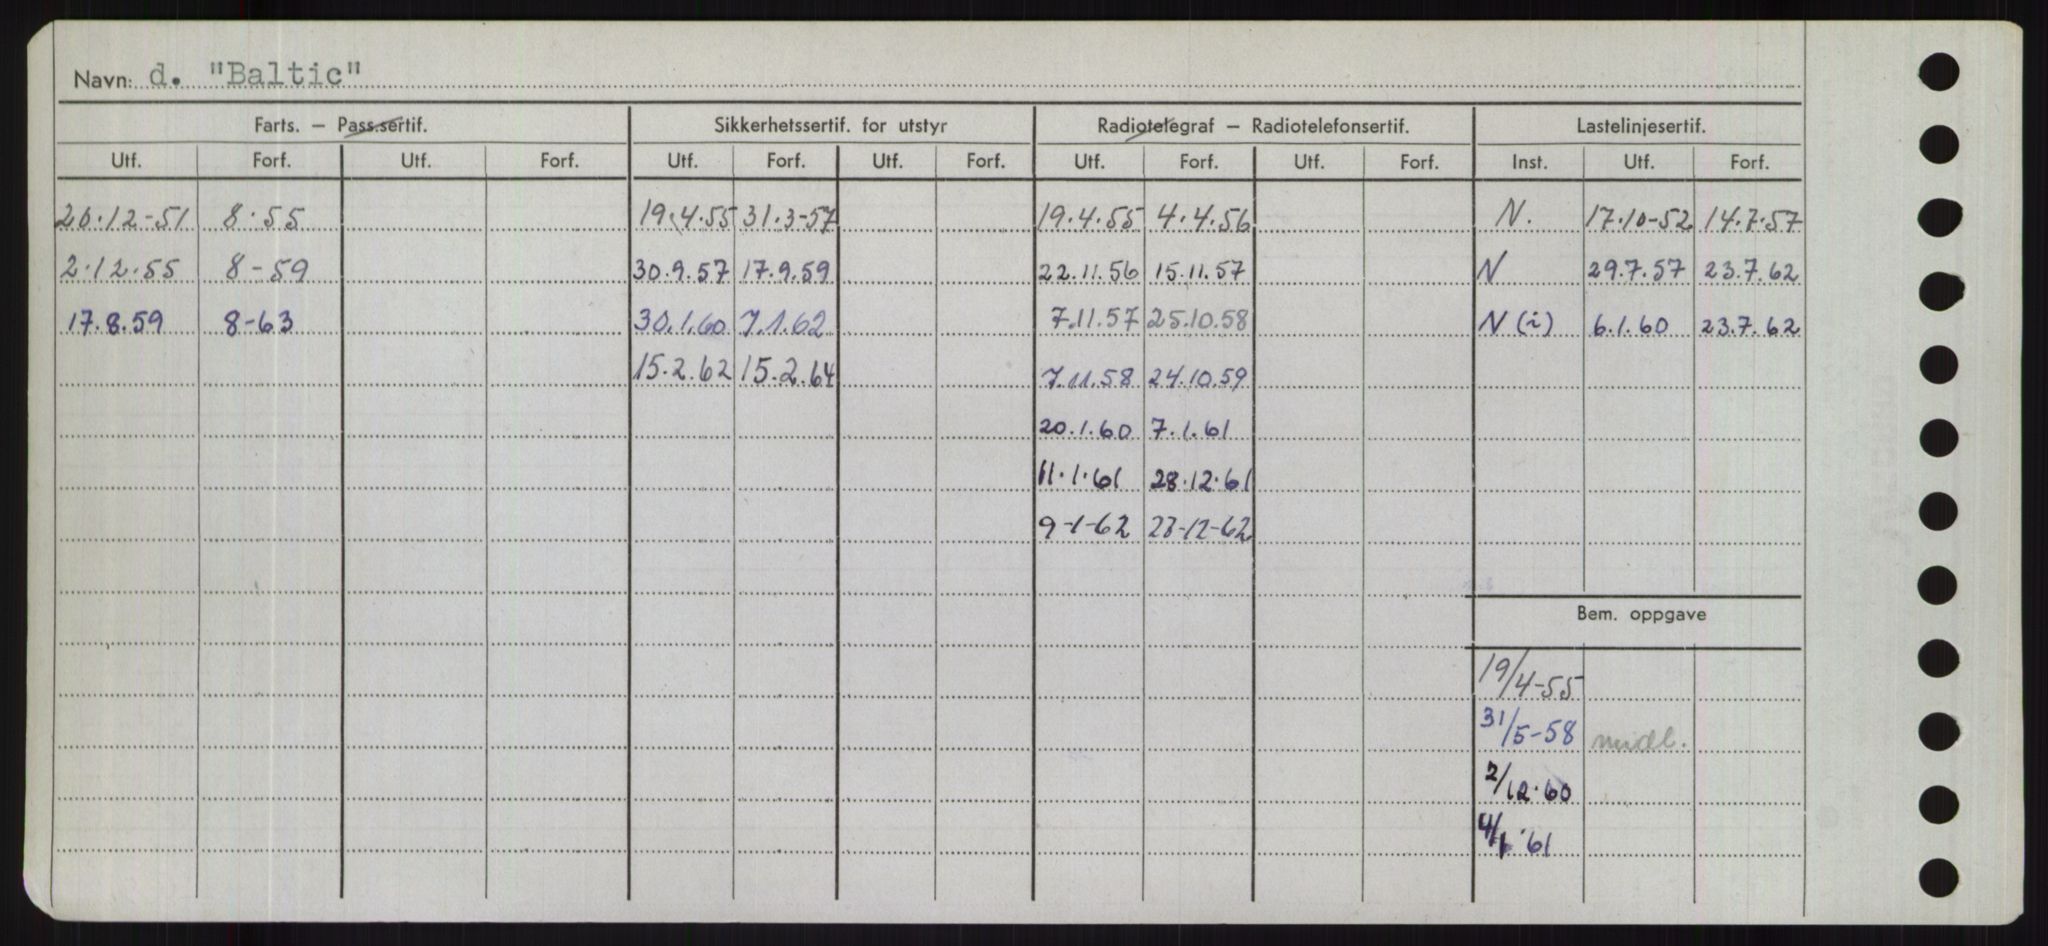 Navn: d. "Baltic"
Farts. — Pass.sertif. Sikkerhetssertif. for utstyr Radiotelegraf — Radiotelefonsertif. Lastelinjesertif.
Utf. Forf. Utf. Forf. Utf. Forf. Utf. Forf. Utf. Forf. Utf. Forf. Inst. Utf. Forf.
20.12-51 8.55 19.4.55 31.3-57 19.4.55 4.4.56 N. 17.10-52 14.7.57
2.12.55 8-59 30.9.57 17.9.59 22.11.56 15.11.57 N 29.7.57 23.7.62
17.8.59 8-63 30.1.60 7.1.62 7.11.57 25.10.58 N (i) 6.1.60 23.7.62
15.2.62 15.2.64 7.11.58 24.10.59
20.1.60 7.1.61
11.1.61 28.12.61
9-1-62 23-12-62
Bem. oppgave
19/4-55
31/5-58 midl.
2/12.60
4/1.61